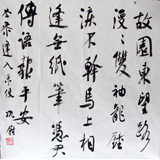 故園東望路
漫〻雙袖龍鍾
淚不幹馬上相
逢無紙筆憑君
傳語報平安
岑參逢入京使